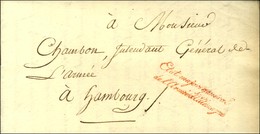 à Monsieur
Chambon, Intendant Général de
L'armée
à hambourg /.
Etat major général